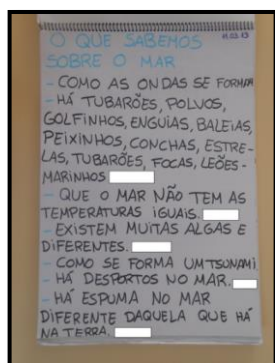 O QUE SABEMOS
SOBRE O MAR
- COMO AS ONDAS SE FORMAM
- HÁ TUBARÕES, POLVOS,
GOLFINHOS, ENGUIAS, BALEIAS,
PEIXINHOS, CONCHAS, ESTRE-
LAS, TUBARÕES, FOCAS, LEÕES-
MARINHOS
- QUE O MAR NÃO TEM AS
TEMPERATURAS IGUAIS.
- EXISTEM MUITAS ALGAS E
DIFERENTES.
- COMO SE FORMA UM TSUNAMI
- HÁ DESPORTOS NO MAR.
- HÁ ESPUMA NO MAR
DIFERENTE DAQUELA QUE HÁ
NA TERRA.